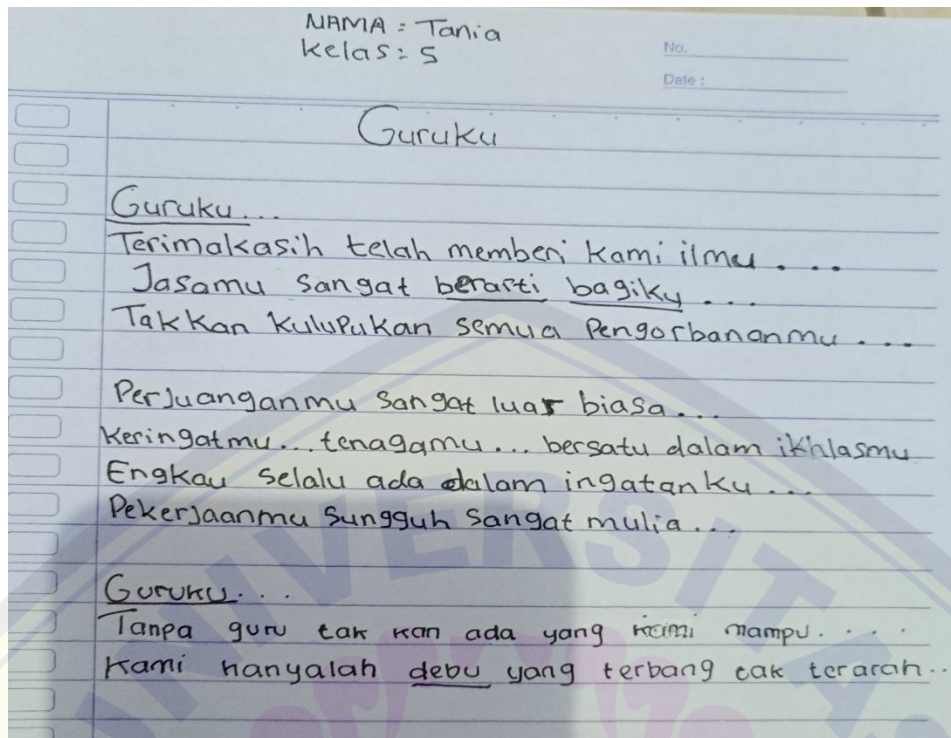 NAMA : Tania
Kelas : 5
No.
Date :
Guruku
Guruku...
Terimakasih telah memberi kami ilmu....
Jasamu sangat berarti bagiku...
Takkan kulupukan semua Pengorbananmu...
Perjuanganmu sangat luar biasa...
Keringatmu... tenagamu... bersatu dalam ikhlasmu
Engkau selalu ada dalam ingatanku...
Pekerjaanmu sungguh sangat mulia...
Guruku...
Tanpa guru tak kan ada yang kami mampu....
Kami hanyalah debu yang terbang tak terarah..
UNIVERSITAS